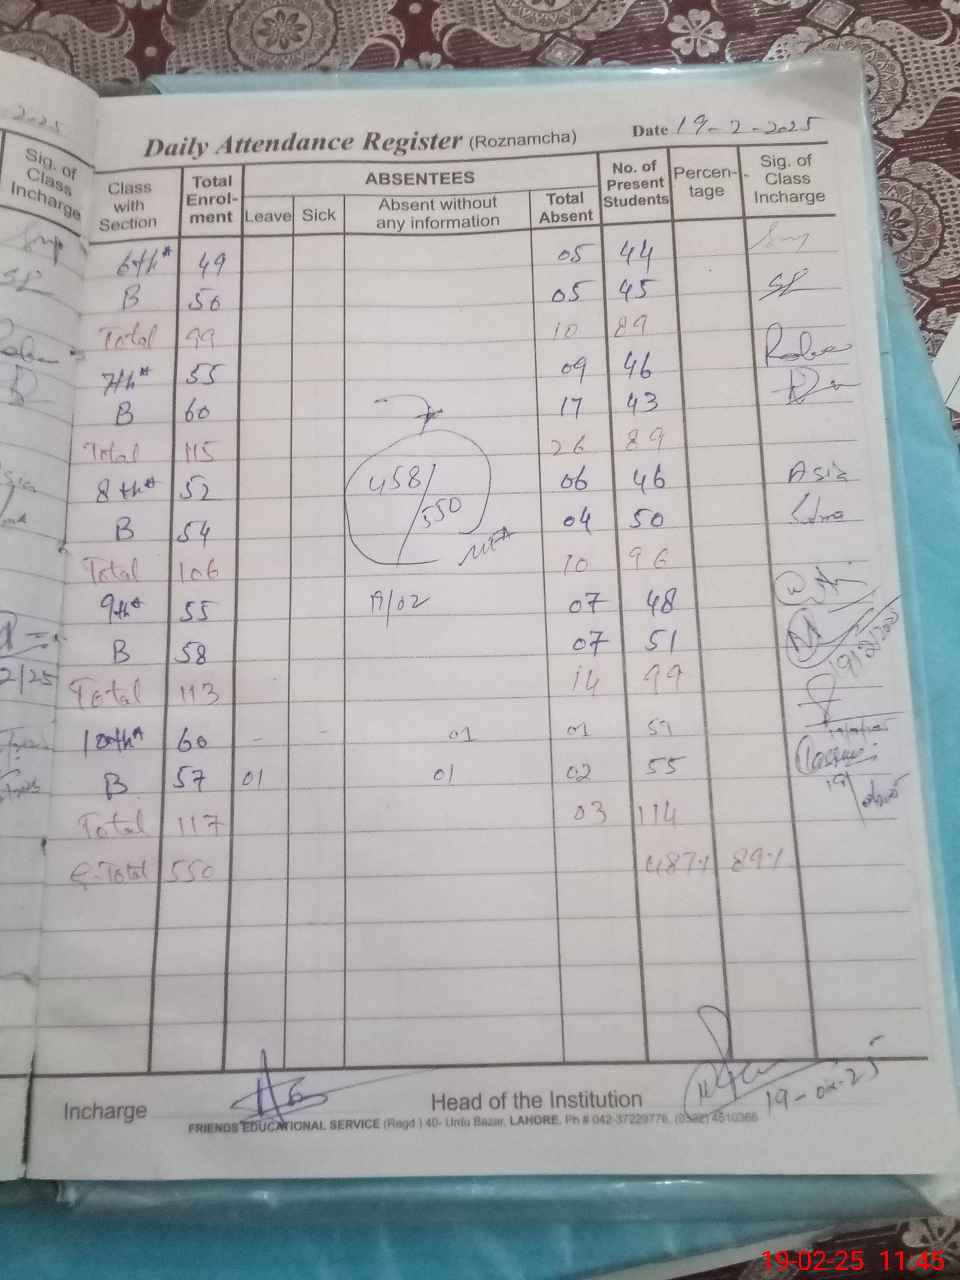 2025
Sig. of
Class
Incharge
Daily Attendance Register (Roznamcha) Date 19-2-2025
Class with Section Total Enrol-ment ABSENTEES Leave Sick Absent without any information Total Absent No. of Present Students Percen-tage Sig. of Class Incharge
6th A 49 05 44
B 50 05 45
Total 99 10 89
7th A 55 09 46
B 60 17 43
Total 115 26 89
8th A 52 458/550 06 46 Asia
B 54 04 50
Total 106 10 96
9th A 55 A/02 07 48
B 58 07 51
Total 113 14 99
10th A 60 - - 01 01 59
B 57 01 01 02 55
Total 117 03 114
G-Total 550 487% 89%
2/25
Incharge Head of the Institution 19-02-25
FRIENDS EDUCATIONAL SERVICE (Regd.) 40- Urdu Bazar, LAHORE. Ph # 042-37229776,
19-02-25 11:45